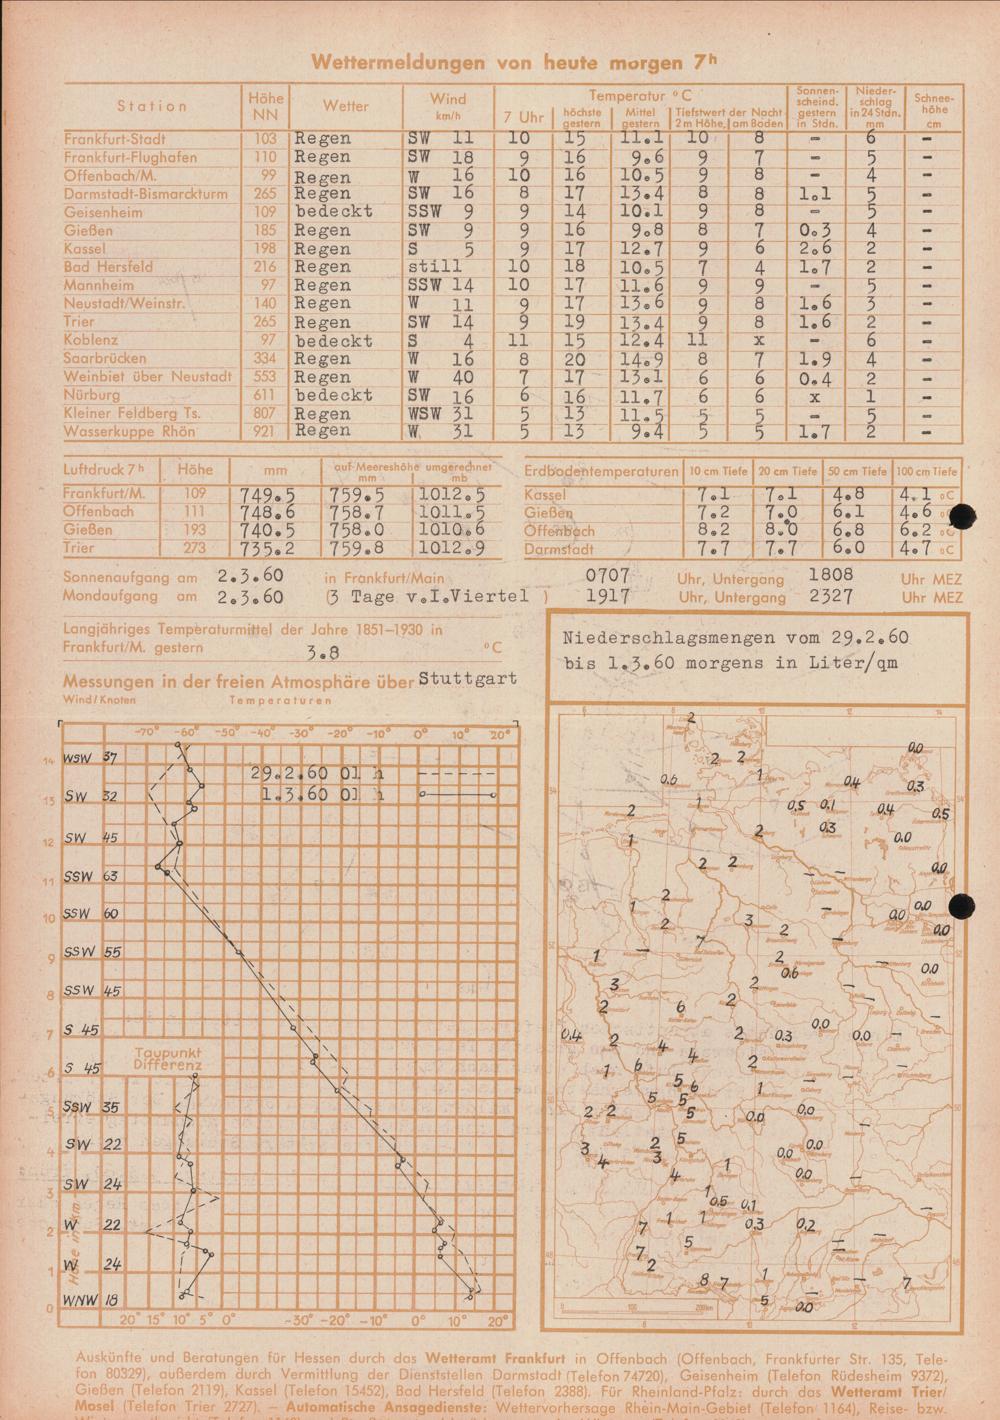 Wettermeldungen von heute morgen 7h
Station Höhe NN Wetter Wind km/h Temperatur °C 7 Uhr höchste gestern Mittel gestern Tiefstwert der Nacht 2 m Höhe, am Boden Sonnen-scheind. gestern in Stdn. Nieder-schlag in 24 Stdn. mm Schnee-höhe cm
Frankfurt-Stadt 103 Regen SW 11 10 15 11.1 10 8 - 6 -
Frankfurt-Flughafen 110 Regen SW 18 9 16 9.6 9 7 - 5 -
Offenbach/M. 99 Regen W 16 10 16 10.5 9 8 - 4 -
Darmstadt-Bismarckturm 265 Regen SW 16 8 17 13.4 8 8 1.1 5 -
Geisenheim 109 bedeckt SSW 9 9 14 10.1 9 8 - 5 -
Gießen 185 Regen SW 9 9 16 9.8 8 7 0.3 4 -
Kassel 198 Regen S 5 9 17 12.7 9 6 2.6 2 -
Bad Hersfeld 216 Regen still 10 18 10.5 7 4 1.7 2 -
Mannheim 97 Regen SSW 14 10 17 11.6 9 9 - 5 -
Neustadt/Weinstr. 140 Regen W 11 9 17 13.6 9 8 1.6 3 -
Trier 265 Regen SW 14 9 19 13.4 9 8 1.6 2 -
Koblenz 97 bedeckt S 4 11 15 12.4 11 x - 6 -
Saarbrücken 334 Regen W 16 8 20 14.9 8 7 1.9 4 -
Weinbiet über Neustadt 553 Regen W 40 7 17 13.1 6 6 0.4 2 -
Nürburg 611 bedeckt SW 16 6 16 11.7 6 6 x 1 -
Kleiner Feldberg Ts. 807 Regen WSW 31 5 13 11.5 5 5 - 5 -
Wasserkuppe Rhön 921 Regen W 31 5 13 9.4 5 5 1.7 2 -
Luftdruck 7h Höhe mm auf Meereshöhe umgerechnet mm mb
Frankfurt/M. 109 749.5 759.5 1012.5
Offenbach 111 748.6 758.7 1011.5
Gießen 193 740.5 758.0 1010.6
Trier 273 735.2 759.8 1012.9
Erdbodentemperaturen 10 cm Tiefe 20 cm Tiefe 50 cm Tiefe 100 cm Tiefe
Kassel 7.1 7.1 4.8 4.1 °C
Gießen 7.2 7.0 6.1 4.6 °C
Offenbach 8.2 8.0 6.8 6.2 °C
Darmstadt 7.7 7.7 6.0 4.7 °C
Sonnenaufgang am 2.3.60 in Frankfurt/Main 0707 Uhr, Untergang 1808 Uhr MEZ
Mondaufgang am 2.3.60 (3 Tage v.I.Viertel ) 1917 Uhr, Untergang 2327 Uhr MEZ
Langjähriges Temperaturmittel der Jahre 1851–1930 in
Frankfurt/M. gestern 3.8 °C
Messungen in der freien Atmosphäre über Stuttgart
Wind/Knoten Temperaturen
-70° -60° -50° -40° -30° -20° -10° 0° 10° 20°
29.2.60 01 h
1.3.60 01 h
14 WSW 37
13 SW 32
12 SW 45
11 SSW 63
10 SSW 60
9 SSW 55
8 SSW 45
7 S 45
6 S 45
Taupunkt
Differenz
5 SSW 35
4 SW 22
3 SW 24
2 W 22
1 W 24
0 WNW 18
Höhe in km
20° 15° 10° 5° 0° -30° -20° -10° 0° 10° 20°
Niederschlagsmengen vom 29.2.60
bis 1.3.60 morgens in Liter/qm
2
2 2 1 0.0
0.6 0.4 0.3
2 1 0.5 0.1 0.4 0.5
1 2 0.3 0.0
2 2 - - 0.0
1 2 - 0.0 0.0
2 3 2 0.0
7 -
1 2 0.6 - 0.0
3 2 -
2 6 2 -
0.4 2 4 2 0.3 0.0 0.0 -
1 6 4 2 -
5 6 1 - -
2 2 5 5 0.0 0.0
3 2 5 0.0 -
4 3 1 0.0
4 0.0
1 0.5 0.1 -
7 1 1 0.3 0.2
7 5 - -
2 8 7 1 - - 7
5 0.0
0 100 200km
Auskünfte und Beratungen für Hessen durch das Wetteramt Frankfurt in Offenbach (Offenbach, Frankfurter Str. 135, Tele-
fon 80329), außerdem durch Vermittlung der Dienststellen Darmstadt (Telefon 74720), Geisenheim (Telefon Rüdesheim 9372),
Gießen (Telefon 2119), Kassel (Telefon 15452), Bad Hersfeld (Telefon 2388). Für Rheinland-Pfalz: durch das Wetteramt Trier/
Mosel (Telefon Trier 2727). – Automatische Ansagedienste: Wettervorhersage Rhein-Main-Gebiet (Telefon 1164), Reise- bzw.